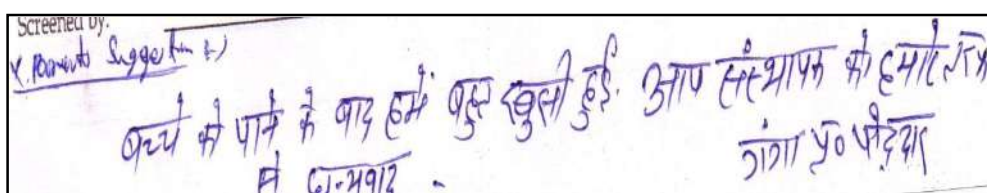 Screened by:
Parents Sugge
बच्चे को पाने के बाद हमें बहुत खुसी हुई. आप संस्थापक को हमारे तरफ
से धन्यवाद .
गंगा प्र० पोद्दार